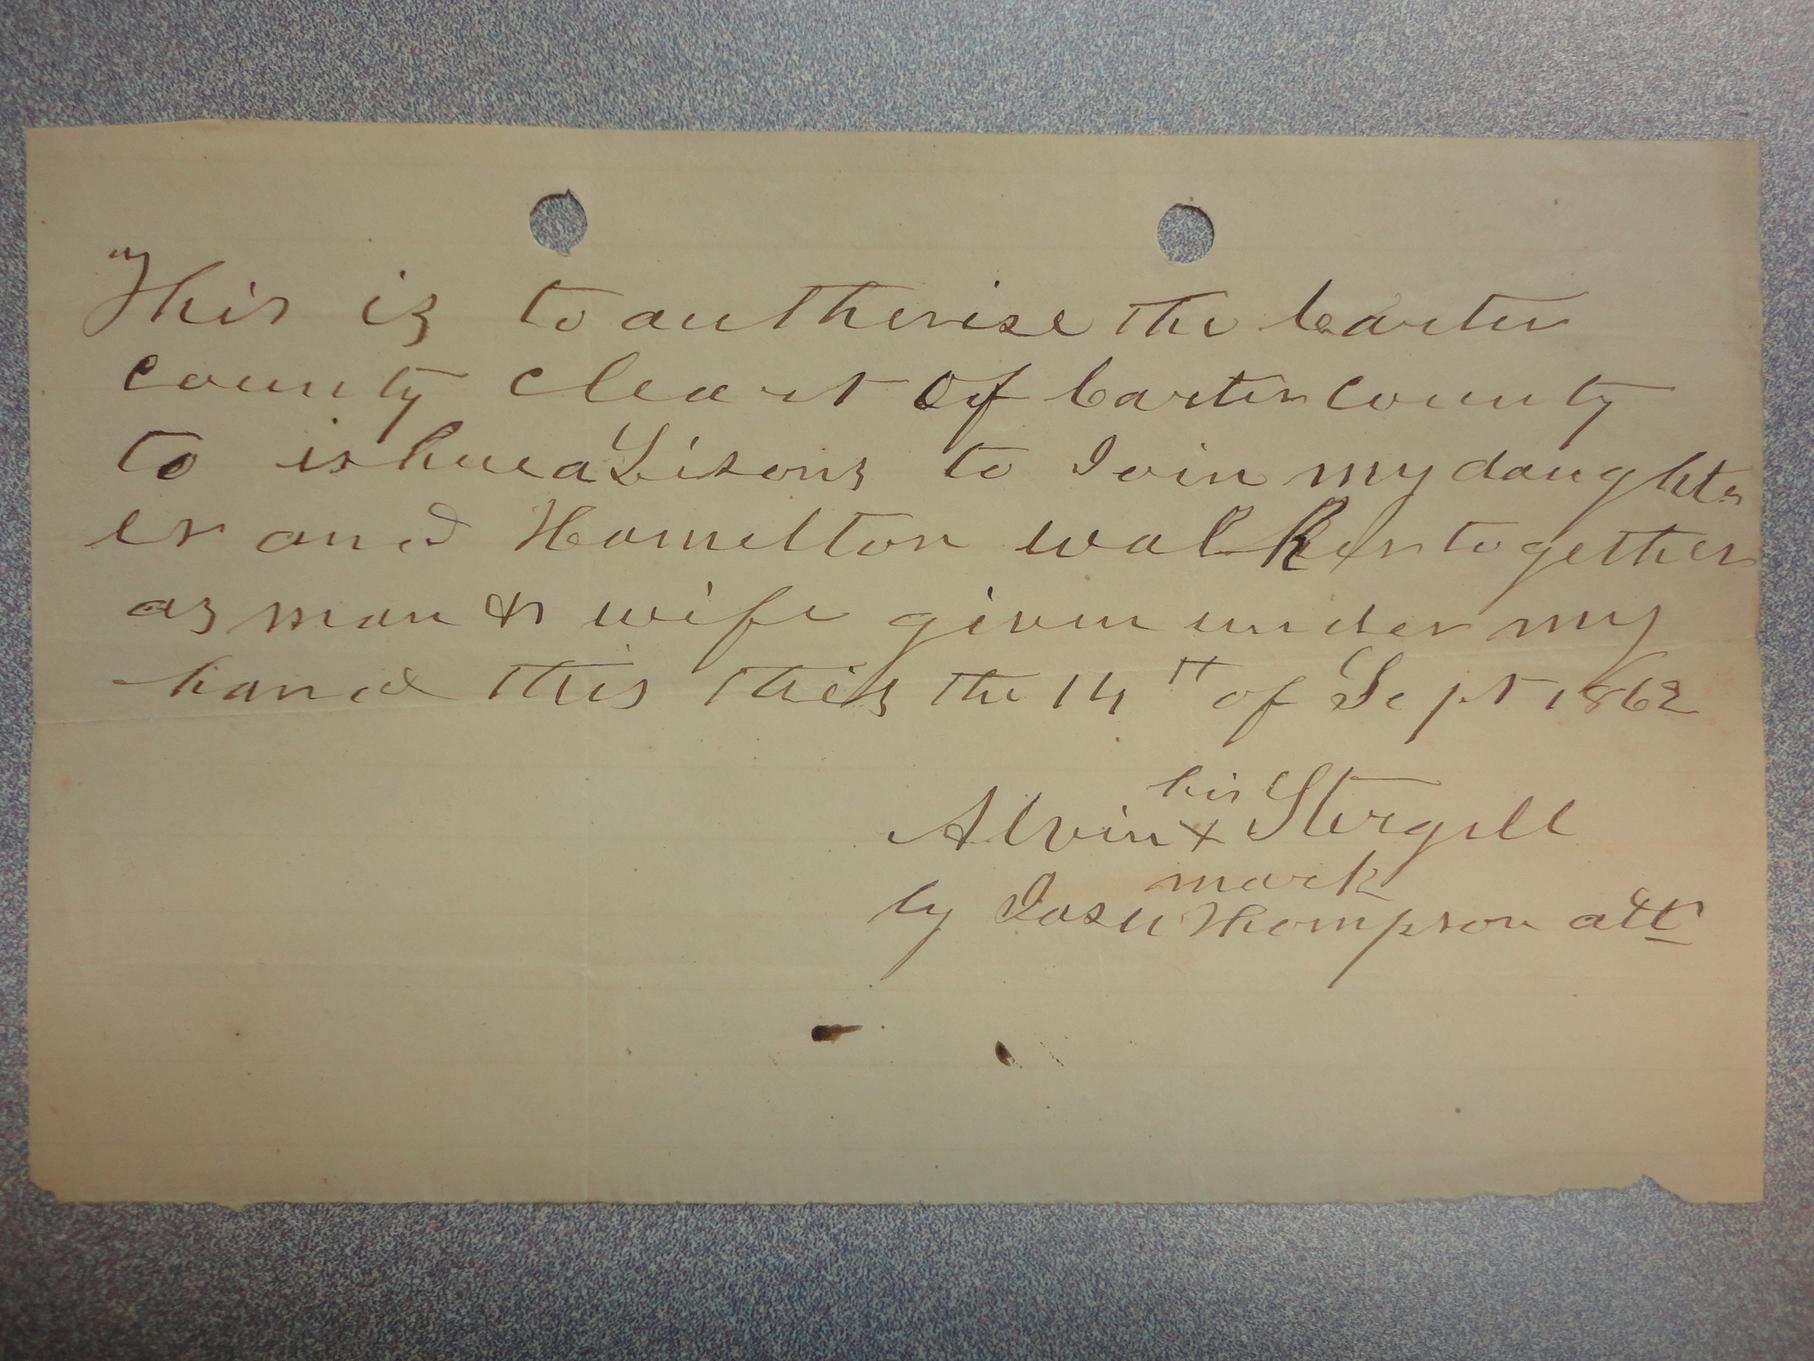 This is to autherise the Carter
county cleart of Carter county
to ishue a Lisons to Join my daughte
er and Hamelton walker together
as man & wife given under my
hand this this the 14tt of Sept 1862
his
Alvin x Stergill
mark
by Thompson att